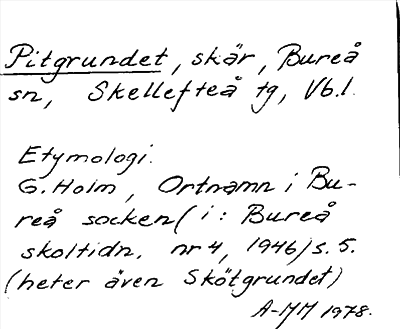 Pitgrundet, skär, Bureå
sn, Skellefteå tg, Vb.l.
Etymologi.
G. Holm, Ortnamn i Bu-
reå socken (i: Bureå
skoltidn. nr 4, 1946) s. 5.
(heter även Skötgrundet)
A-MM 1978.